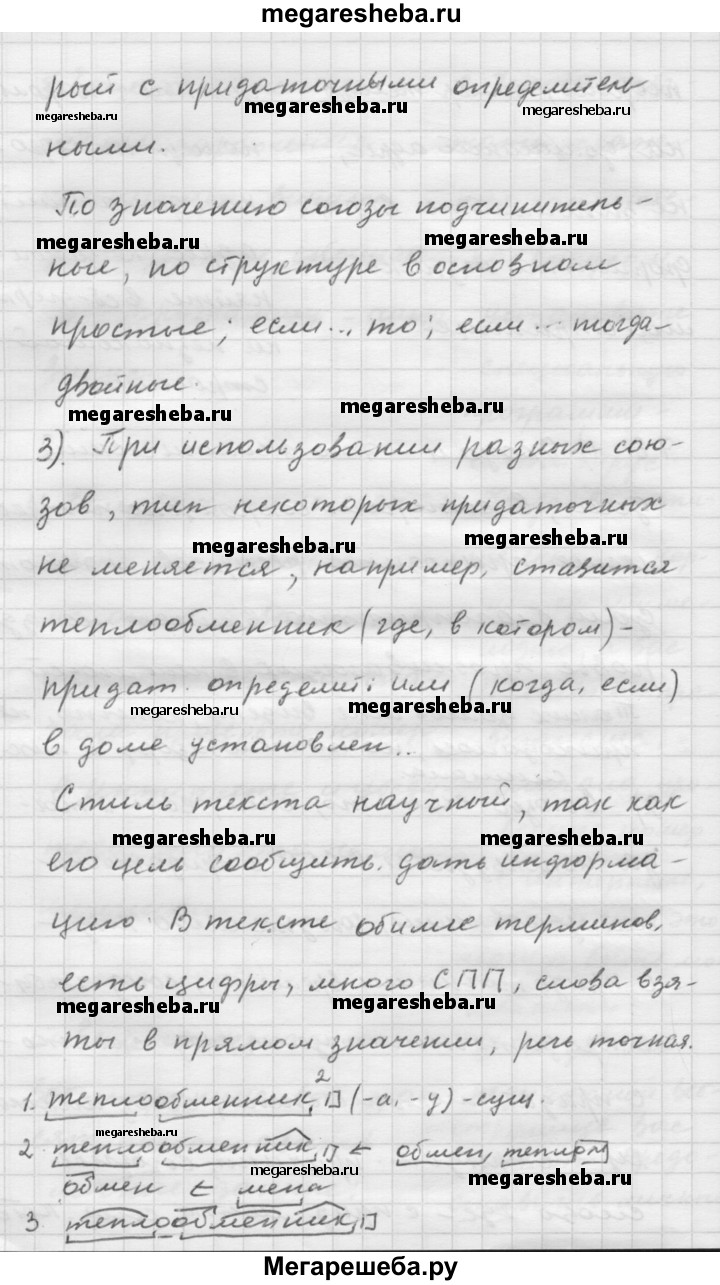 megaresheba.ru
рый с придаточными определитель
megaresheba.ru megaresheba.ru megaresheba.ru
ными.
По значению союзы подчинитель-
megaresheba.ru megaresheba.ru
ные, по структуре в основном
простые; если... то; если... тогда-
двойные.
megaresheba.ru megaresheba.ru
3). При использовании разных сою-
зов, тип некоторых придаточных
megaresheba.ru megaresheba.ru
не меняется, например, ставится
теплообменник (где, в котором) -
придат. определит. или (когда, если)
megaresheba.ru megaresheba.ru
в доме установлен...
Стиль текста научный, так как
megaresheba.ru megaresheba.ru
его цель сообщить. дать информа-
цию. В тексте обилие терминов,
есть цифры, много СПП, слова взя-
megaresheba.ru megaresheba.ru
ты в прямом значении, речь точная.
1. теплообменник2, □ (-а, -у) - сущ.
megaresheba.ru
2. теплообменник, □ ← обмен, теплом
megaresheba.ru megaresheba.ru
обмен ← мена
3 теплообменник, □
Мегарешеба.ру